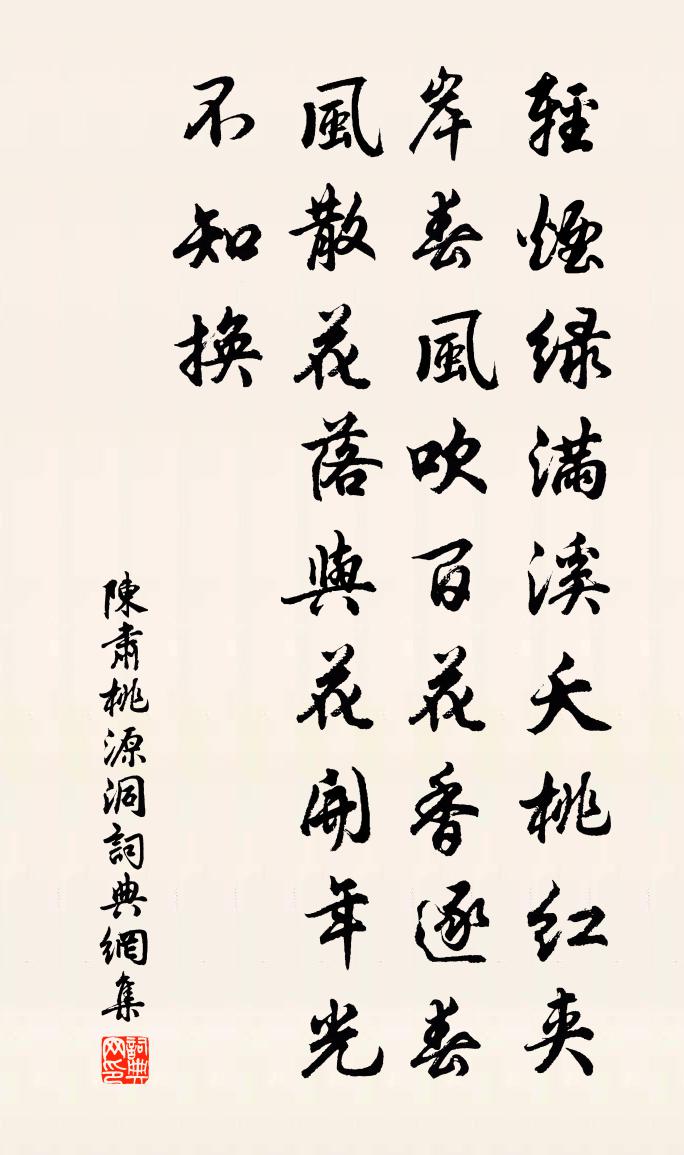 輕煙绿滿溪夭桃红夾
岸春風吹百花香逐春
風散花落與花開年光
不知換
陳肅桃源洞詞典網集
詞典网印